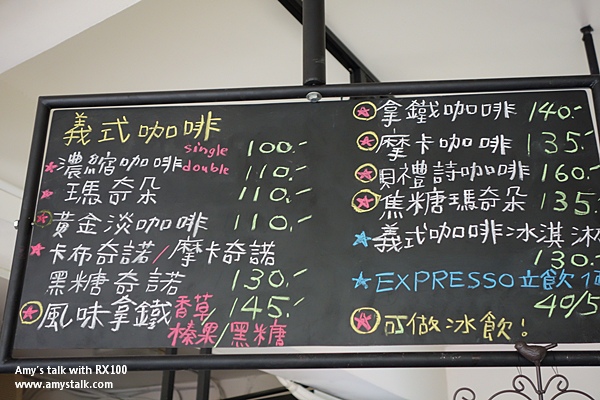 義式咖啡
single 100.-
濃縮咖啡 double 110.-
瑪奇朵 110.-
黃金淡咖啡 110.-
卡布奇諾/摩卡奇諾
黑糖奇諾 130.-
風味拿鐵 香草/ 145.-
榛果/黑糖
拿鐵咖啡 140.-
摩卡咖啡 135.-
貝禮詩咖啡 160.-
焦糖瑪奇朵 135.
義式咖啡冰淇淋
130.-
EXPRESSO立飲
40/5
可做冰飲!
Amy's talk with RX100
www.amystalk.com